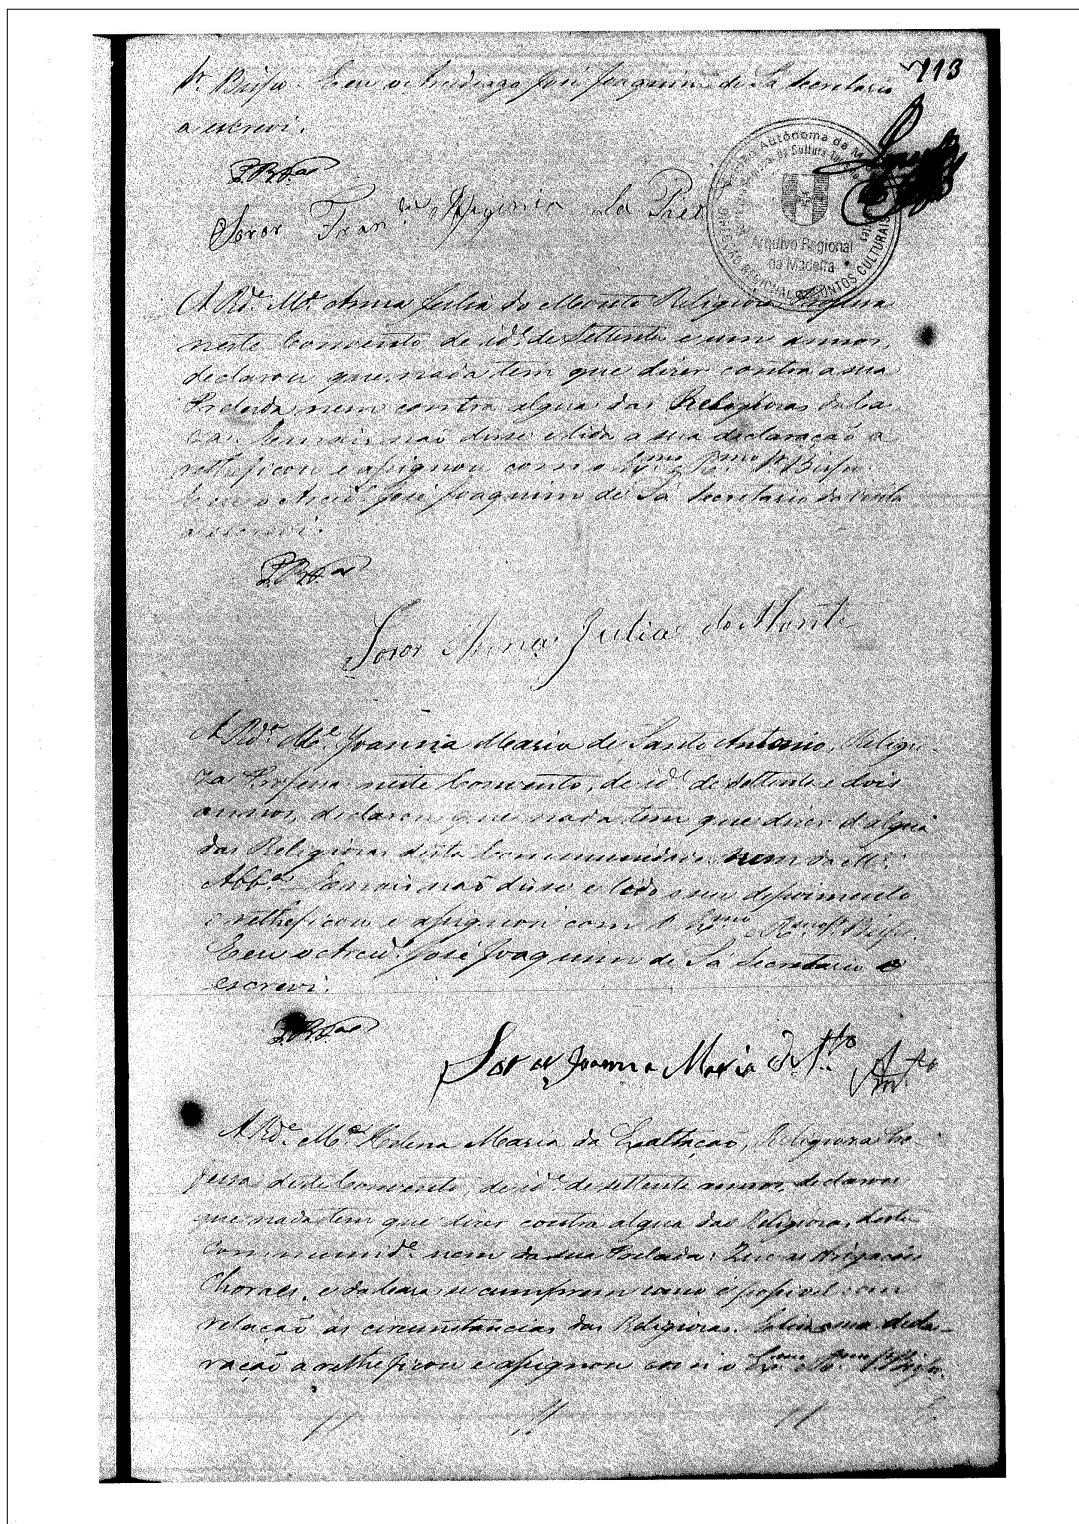 113
Sr. Bispo. E eu o Arcediago José Joaquim de Sá Secretario
a escrevi.
Soror Fran
A Rd.ª M.e Anna Julia do Monte Religiosa Professa
neste Convento de id.e de settenta e um annos,
declarou que nada tem que dizer contra a sua
Prelada nem contra algua das Religiosas da Ca
za. E mais não disse e lida a sua declaração a
retheficou e assignou com o Ex.mo R.mo Sr. Bispo.
E eu o Arced.º José Joaquim de Sá Secretario da Vizita
a escrevi.
Soror Anna Julia do Monte
A Rd.ª M.e Joanna Maria de Santo Antonio, Religio
za Professa neste Convento, de id.e de settenta e dois
annos, declarou que nada tem que dizer d'algua
das Religiosas desta Communidade nem da M.e
Abb.ª E mais não disse e lido o seu depoimento
o retheficou e assignou com o Ex.mo R.mo Sr. Bispo.
E eu o Arced.º José Joaquim de Sá Secretario o
escrevi.
Soror Joanna Maria de S.to Ant.º
A Rd.ª M.e Helena Maria da Exaltação, Religiosa Pro
fessa deste Convento, de id.e de settenta annos, declarou
que nada tem que dizer contra algua das Religiosas desta
Communid.e nem da sua Prelada: Que as obrigações
Choraes, e da Caza se cumprem como é possivel com
relação ás circunstancias das Religiosas. E lida a sua decla-
ração a rethificou e assignou com o Ex.mo R.mo Sr. Bispo.
E
Autónoma da
Arquivo Regional
da Madeira
ASSUNTOS CULTURAIS